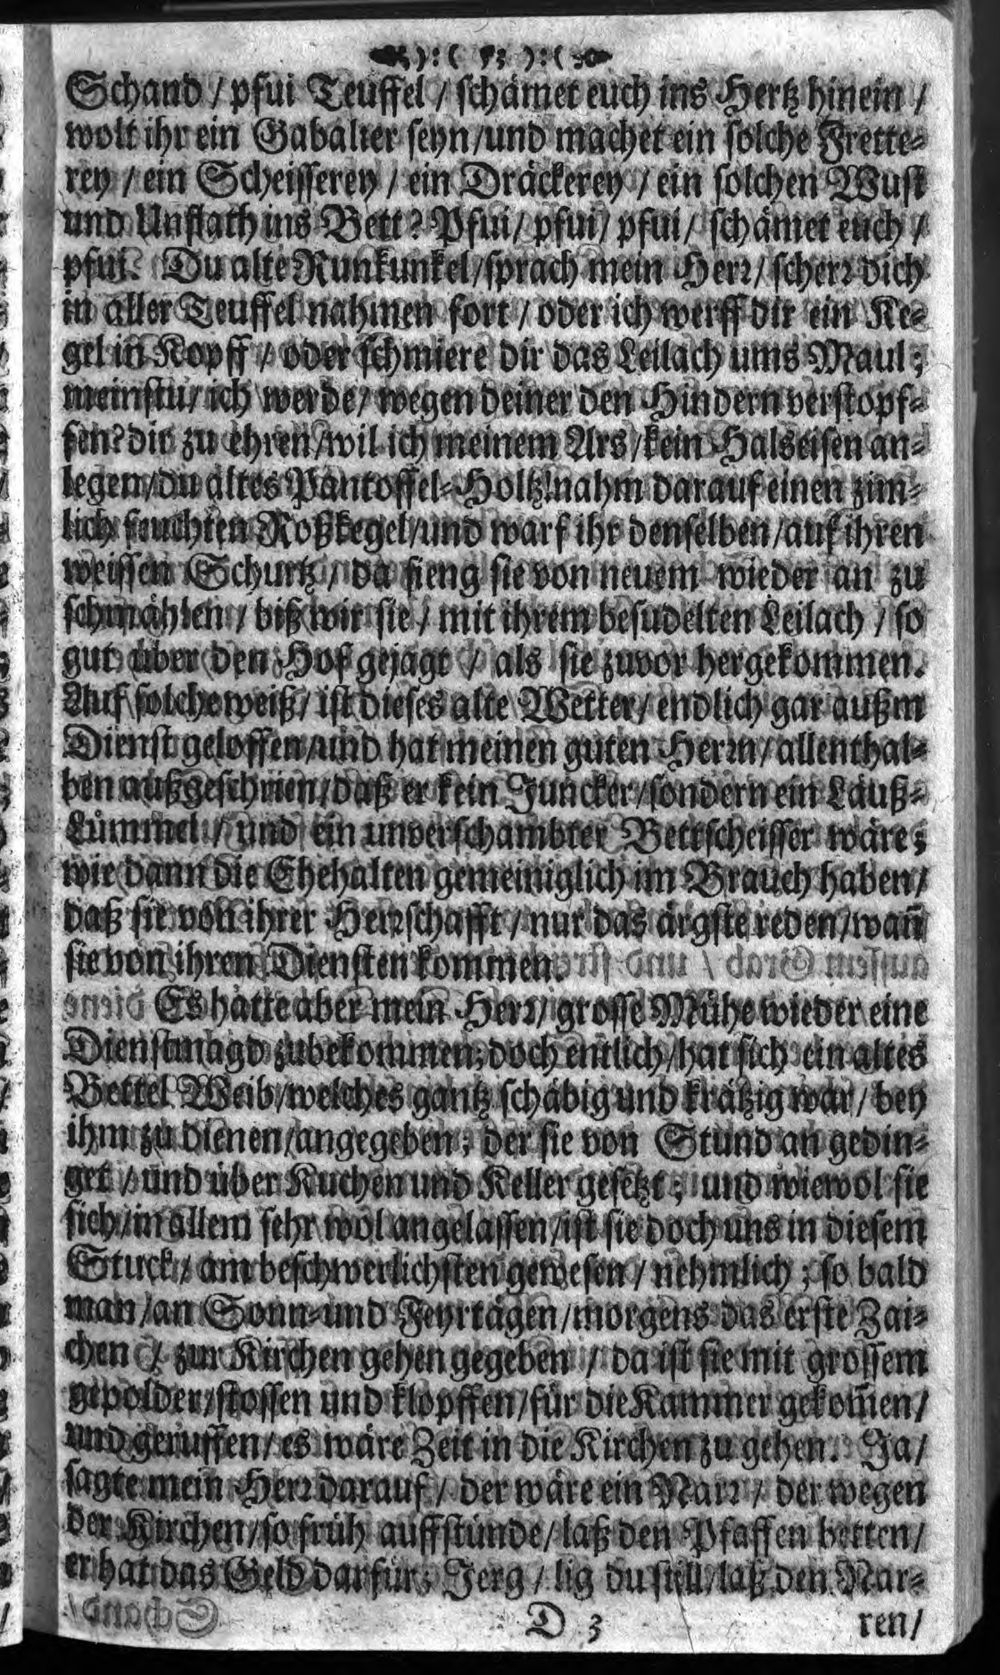 ):( 53 ):(
Schand / pfui Teuffel / schämet euch ins Hertz hinein /
wolt ihr ein Gabalier seyn/und machet ein solche Frette-
rey / ein Scheisserey / ein Dräckerey / ein solchen Wust
und Unflath ins Bett? Pfui/ pfui/ pfui/ schämet euch /
pfui. Du alte Runkunkel/sprach mein Herr/ scherr dich
in aller Teuffel nahmen fort / oder ich werff dir ein Ke-
gel in Kopff / oder schmiere dir das Leilach ums Maul;
meinstu/ ich werde/ wegen deiner den Hindern verstopf-
fen? dir zu ehren/wil ich meinem Ars/kein Halseisen an-
legen/du altes Pantoffel-Holtz! nahm darauf einen zim-
lich feuchten Roßkegel/und warf ihr denselben/auf ihren
weissen Schurtz / da fieng sie von neuem wieder an zu
schmählen / biß wir sie / mit ihrem besudelten Leilach / so
gut über den Hof gejagt / als sie zuvor hergekommen.
Auf solche weiß/ ist dieses alte Wetter/ endlich gar außm
Dienst geloffen/und hat meinen guten Herrn/ allenthal-
ben außgeschrien/daß er kein Juncker/sondern ein Lauß-
Lümmel / und ein unverschambter Bettscheisser wäre;
wie dann die Ehehalten gemeiniglich im Brauch haben/
daß sie von ihrer Herrschafft / nur das ärgste reden/wañ
sie von ihren Diensten kommen.
Es hatte aber mein Herr/ grosse Mühe wieder eine
Dienstmagd zubekommen; doch entlich/hat sich ein altes
Bettel Weib/welches gantz schäbig und krätzig war/ bey
ihm zu dienen/angegeben; der sie von Stund an gedin-
get / und über Kuchen und Keller gesetzt; und wiewol sie
sich/in allem sehr wol angelassen/ist sie doch uns in diesem
Stuck/ am beschwerlichsten gewesen / nehmlich; so bald
man/an Sonn-und Feyrtägen/morgens das erste Zai-
chen / zur Kirchen gehen gegeben / da ist sie mit grossem
gepolder/stossen und klopffen/für die Kammer gekom̃en/
und geruffen/ es wäre Zeit in die Kirchen zu gehen. Ja/
sagte mein Herr darauf / der wäre ein Narr / der wegen
der Kirchen/so früh auffstünde/laß den Pfaffen betten/
er hat das Geld darfür; Jerg / lig du still/laß den Nar-
D 3 ren/